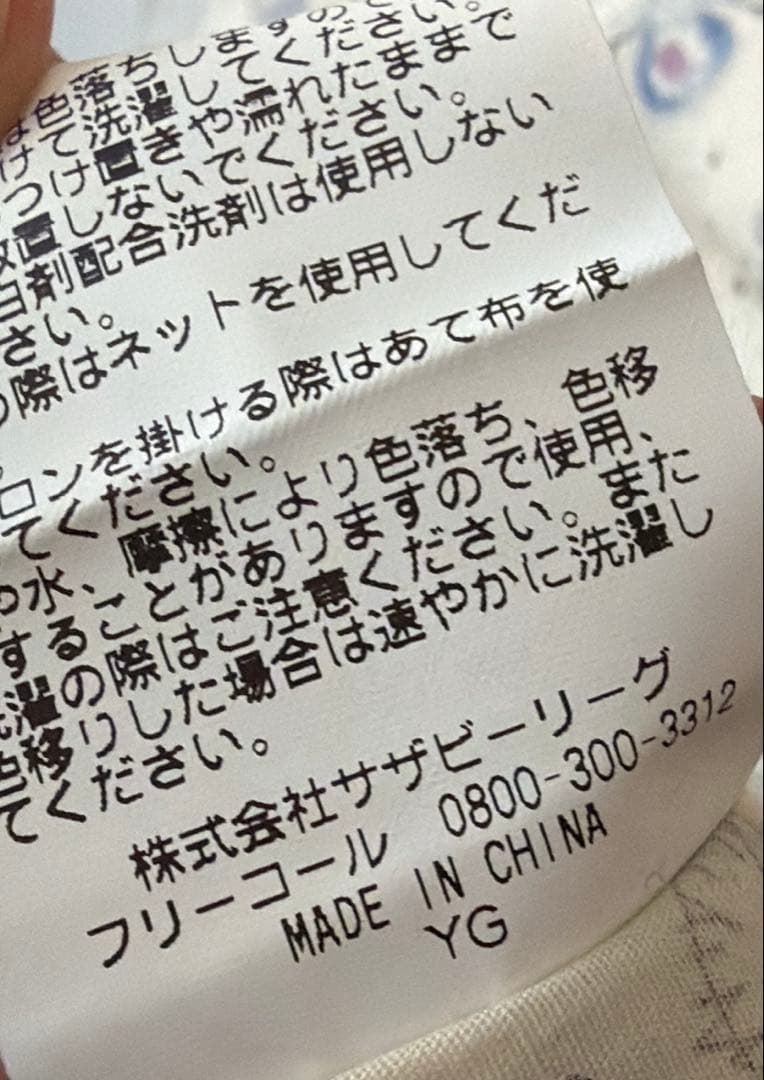 は色落ちします
けて洗濯してください。
つけ置きや濡れたままで
放置しないでください。
白剤配合洗剤は使用しない
さい。
際はネットを使用してくだ
ロンを掛ける際はあて布を使
てください。
や水、摩擦により色落ち、色移
することがありますので使用、
洗濯の際はご注意ください。また
色移りした場合は速やかに洗濯し
てください。
株式会社サザビーリーグ
フリーコール 0800-300-3312
MADE IN CHINA
YG